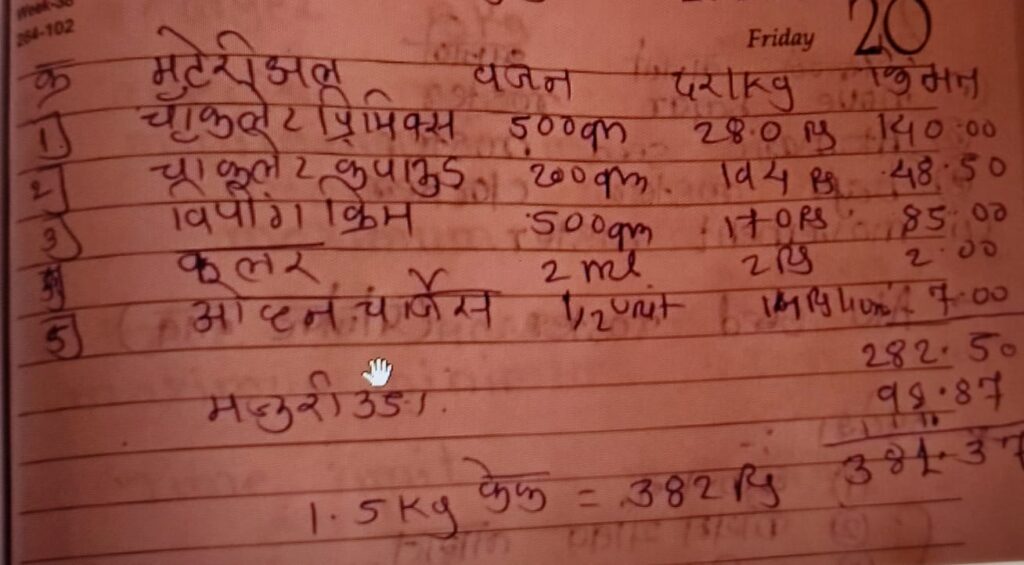 Week-38
264-102
Friday 20
क्र मटेरीअल वजन दर/kg किंमत
1) चॉकलेट प्रिमिक्स 500gm 280 Rs 140.00
2) चाकुलेट कंपाऊंड 200gm. 194 Rs 48.50
3) विपींग क्रिम 500gm 170Rs 85.00
कलर 2 ml 2Rs 2.00
5) ओव्हन चार्जेस 1/2 unit 7.00
282.50
मजुरी 35%. 98.87
381.37
1.5Kg केक = 382 Rs